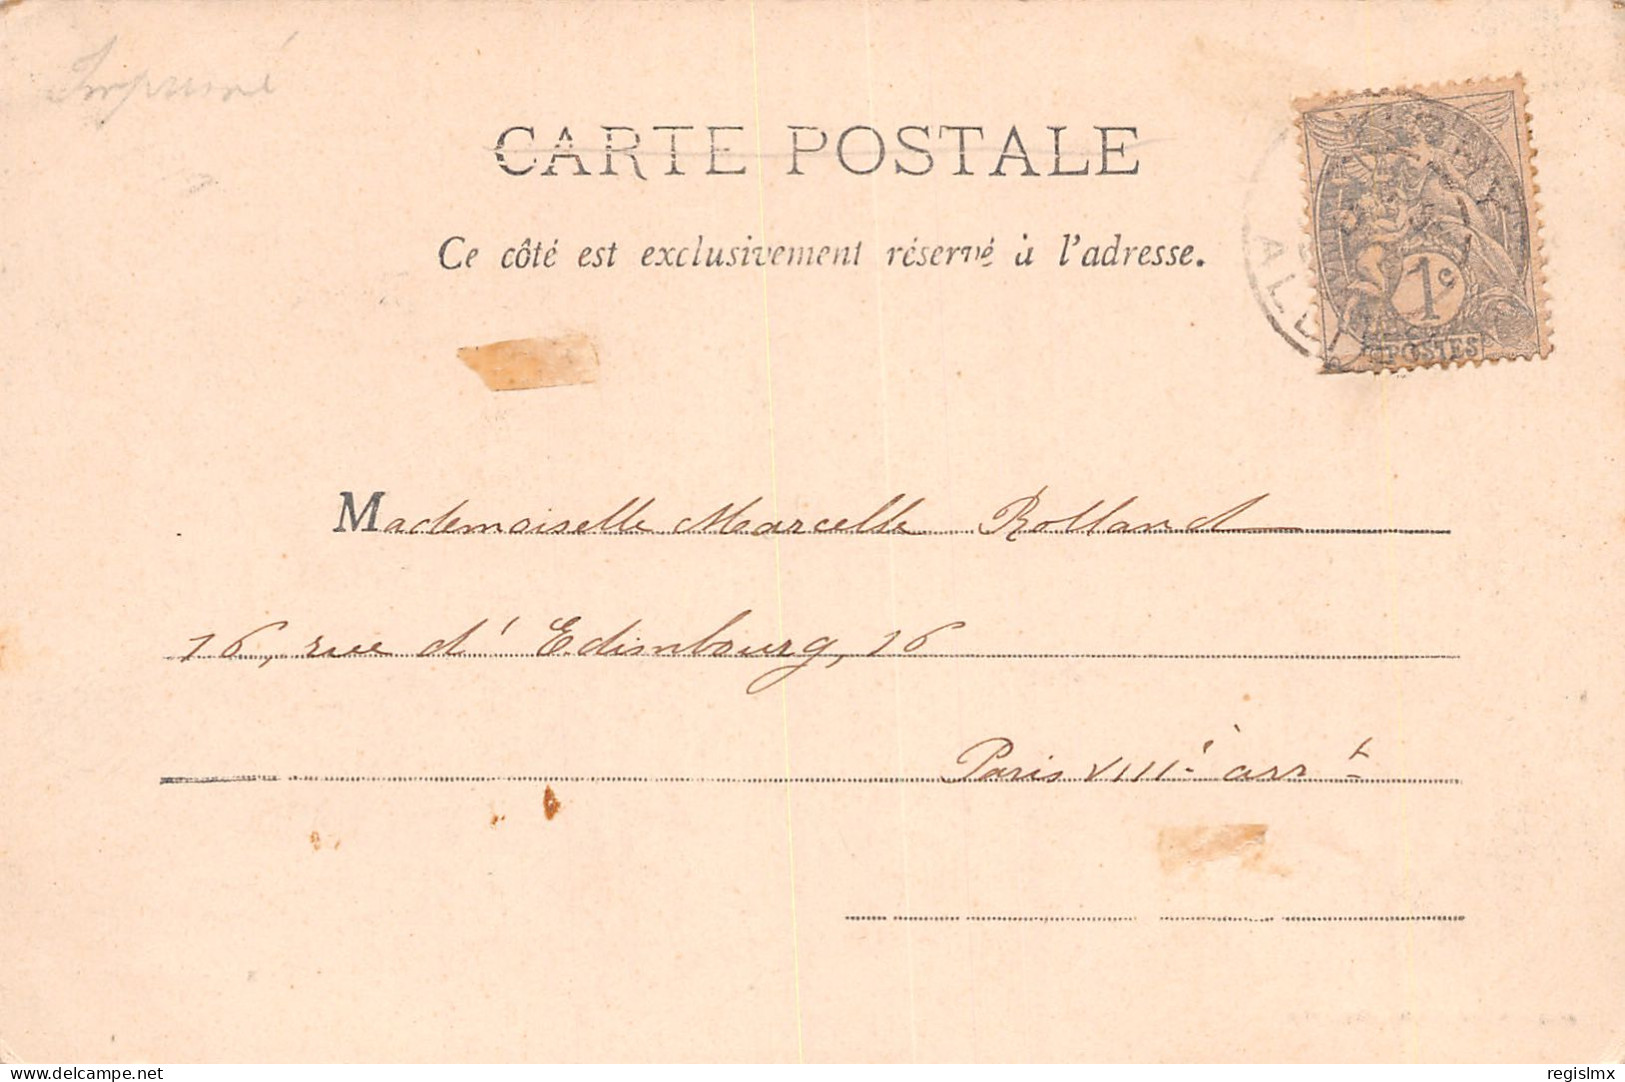 Imprimé
CARTE POSTALE
Ce côté est exclusivement réservé à l'adresse.
1c
POSTES
Mademoiselle Marcelle Rolland
16, rue d'Edimbourg, 16
Paris VIIIe arrt
www.delcampe.net
regislmx